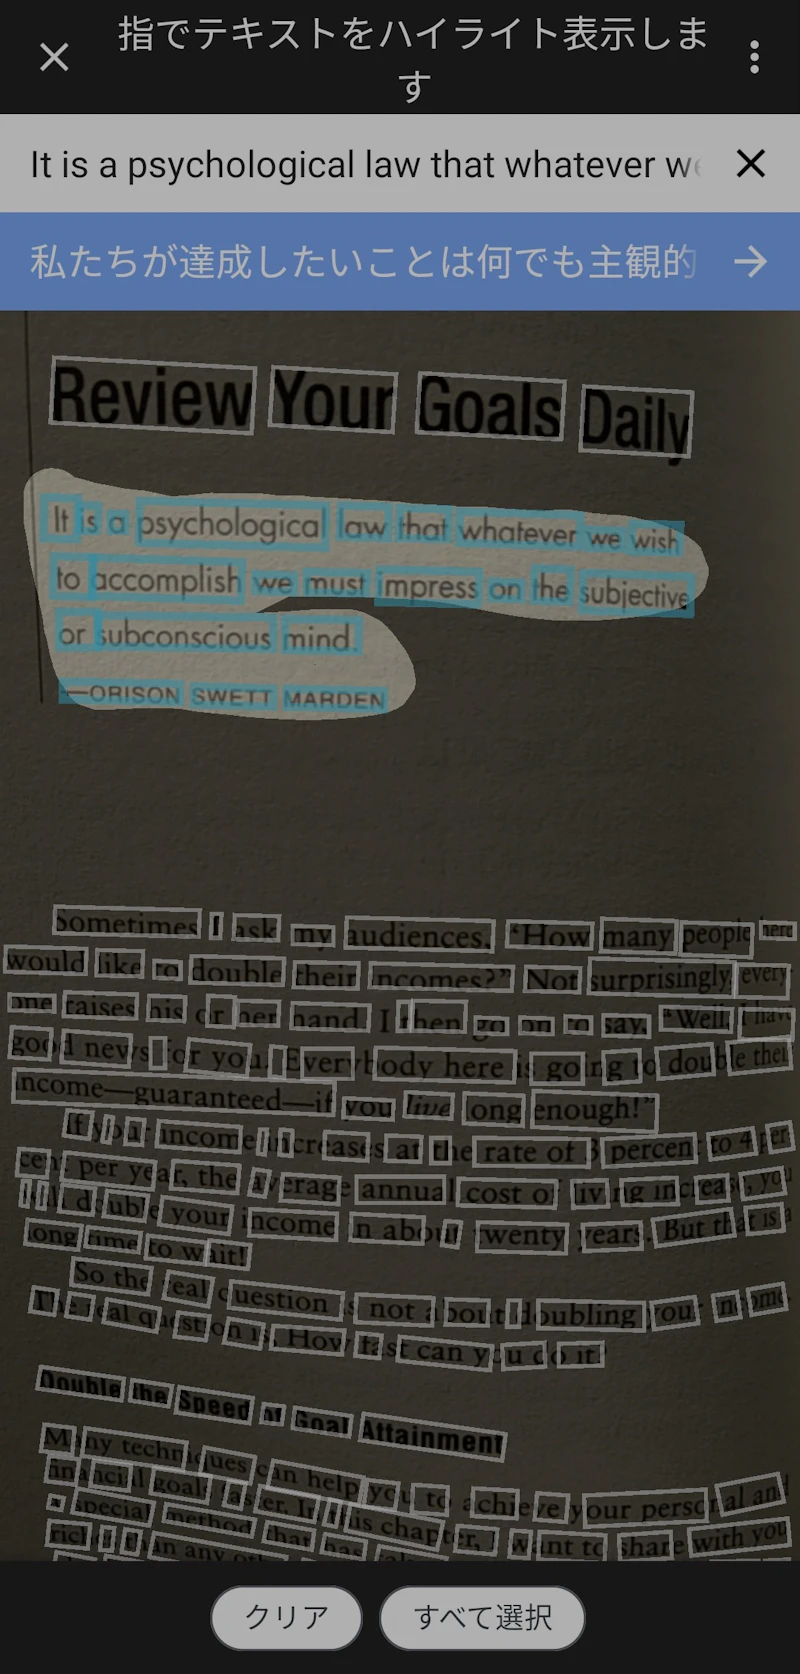 指でテキストをハイライト表示しま
す
It is a psychological law that whatever we
私たちが達成したいことは何でも主観的
Review Your Goals Daily
It is a psychological law that whatever we wish
to accomplish we must impress on the subjective
or subconscious mind.
—ORISON SWETT MARDEN
Sometimes I ask my audiences, "How many people here
would like to double their incomes?" Not surprisingly, every
one raises his or her hand. I then go on to say, "Well, I have
good news for you. Everybody here is going to double their
income—guaranteed—if you live long enough!"
If your income increases at the rate of 3 percent to 4 per
cent per year, the average annual cost of living increase, you
will double your income in about twenty years. But that is a
long time to wait!
So the real question is not about doubling your income.
The real question is, How fast can you do it?
Double the Speed of Goal Attainment
Many techniques can help you to achieve your personal and
financial goals faster. In this chapter, I want to share with you
a special method that has
rich than any
クリア
すべて選択